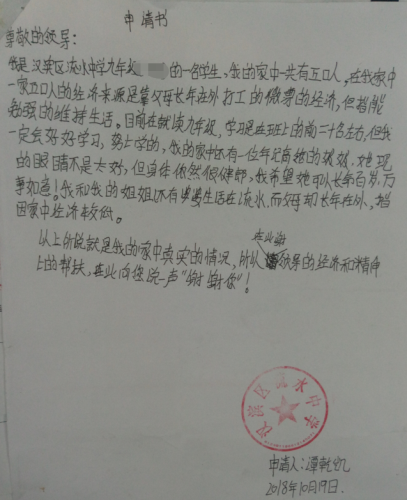 申请书
尊敬的领导:
我是汉滨区流水中学九年级 的一名学生,我的家中一共有五口人,在我家中
一家五口人的经济来源是靠父母长年在外打工的微薄的经济,但指能
勉强的维持生活。目前在就读九年级,学习是在班上的前二十名左右,但我
一定会好好学习,努力学的,我的家中还有一位年纪高的,她现
的眼睛不是太好,但身体依然很健郎,我希望她可以长命百岁,万
事如意!我和我的姐姐还有婆婆生活在流水,而父母却长年在外,指
因家中经济较低。
以上所说就是我的家中真实的情况,所以在此谢领导的经济和精神
上的帮扶,在此向您说一声“谢谢你”!
汉滨区流水中学
申请人:谭乾
2018年10月19日.